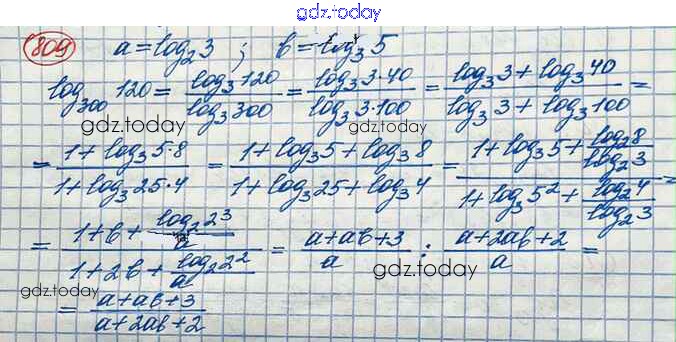 gdz.today
809 a = log₂3 ; b = log₃5
log₃₀₀ 120 = log₃120 / log₃300 = log₃3·40 / log₃3·100 = (log₃3 + log₃40) / (log₃3 + log₃100) =
gdz.today
gdz.today
= (1 + log₃5·8) / (1 + log₃25·4) = (1 + log₃5 + log₃8) / (1 + log₃25 + log₃4) = (1 + log₃5 + log₂8 / log₂3) / (1 + log₃5² + log₂4 / log₂3) =
= (1 + b + log₂2³ / a) / (1 + 2b + log₂2² / a) = (a + ab + 3) / a : (a + 2ab + 2) / a =
gdz.today
gdz.today
= (a + ab + 3) / (a + 2ab + 2)